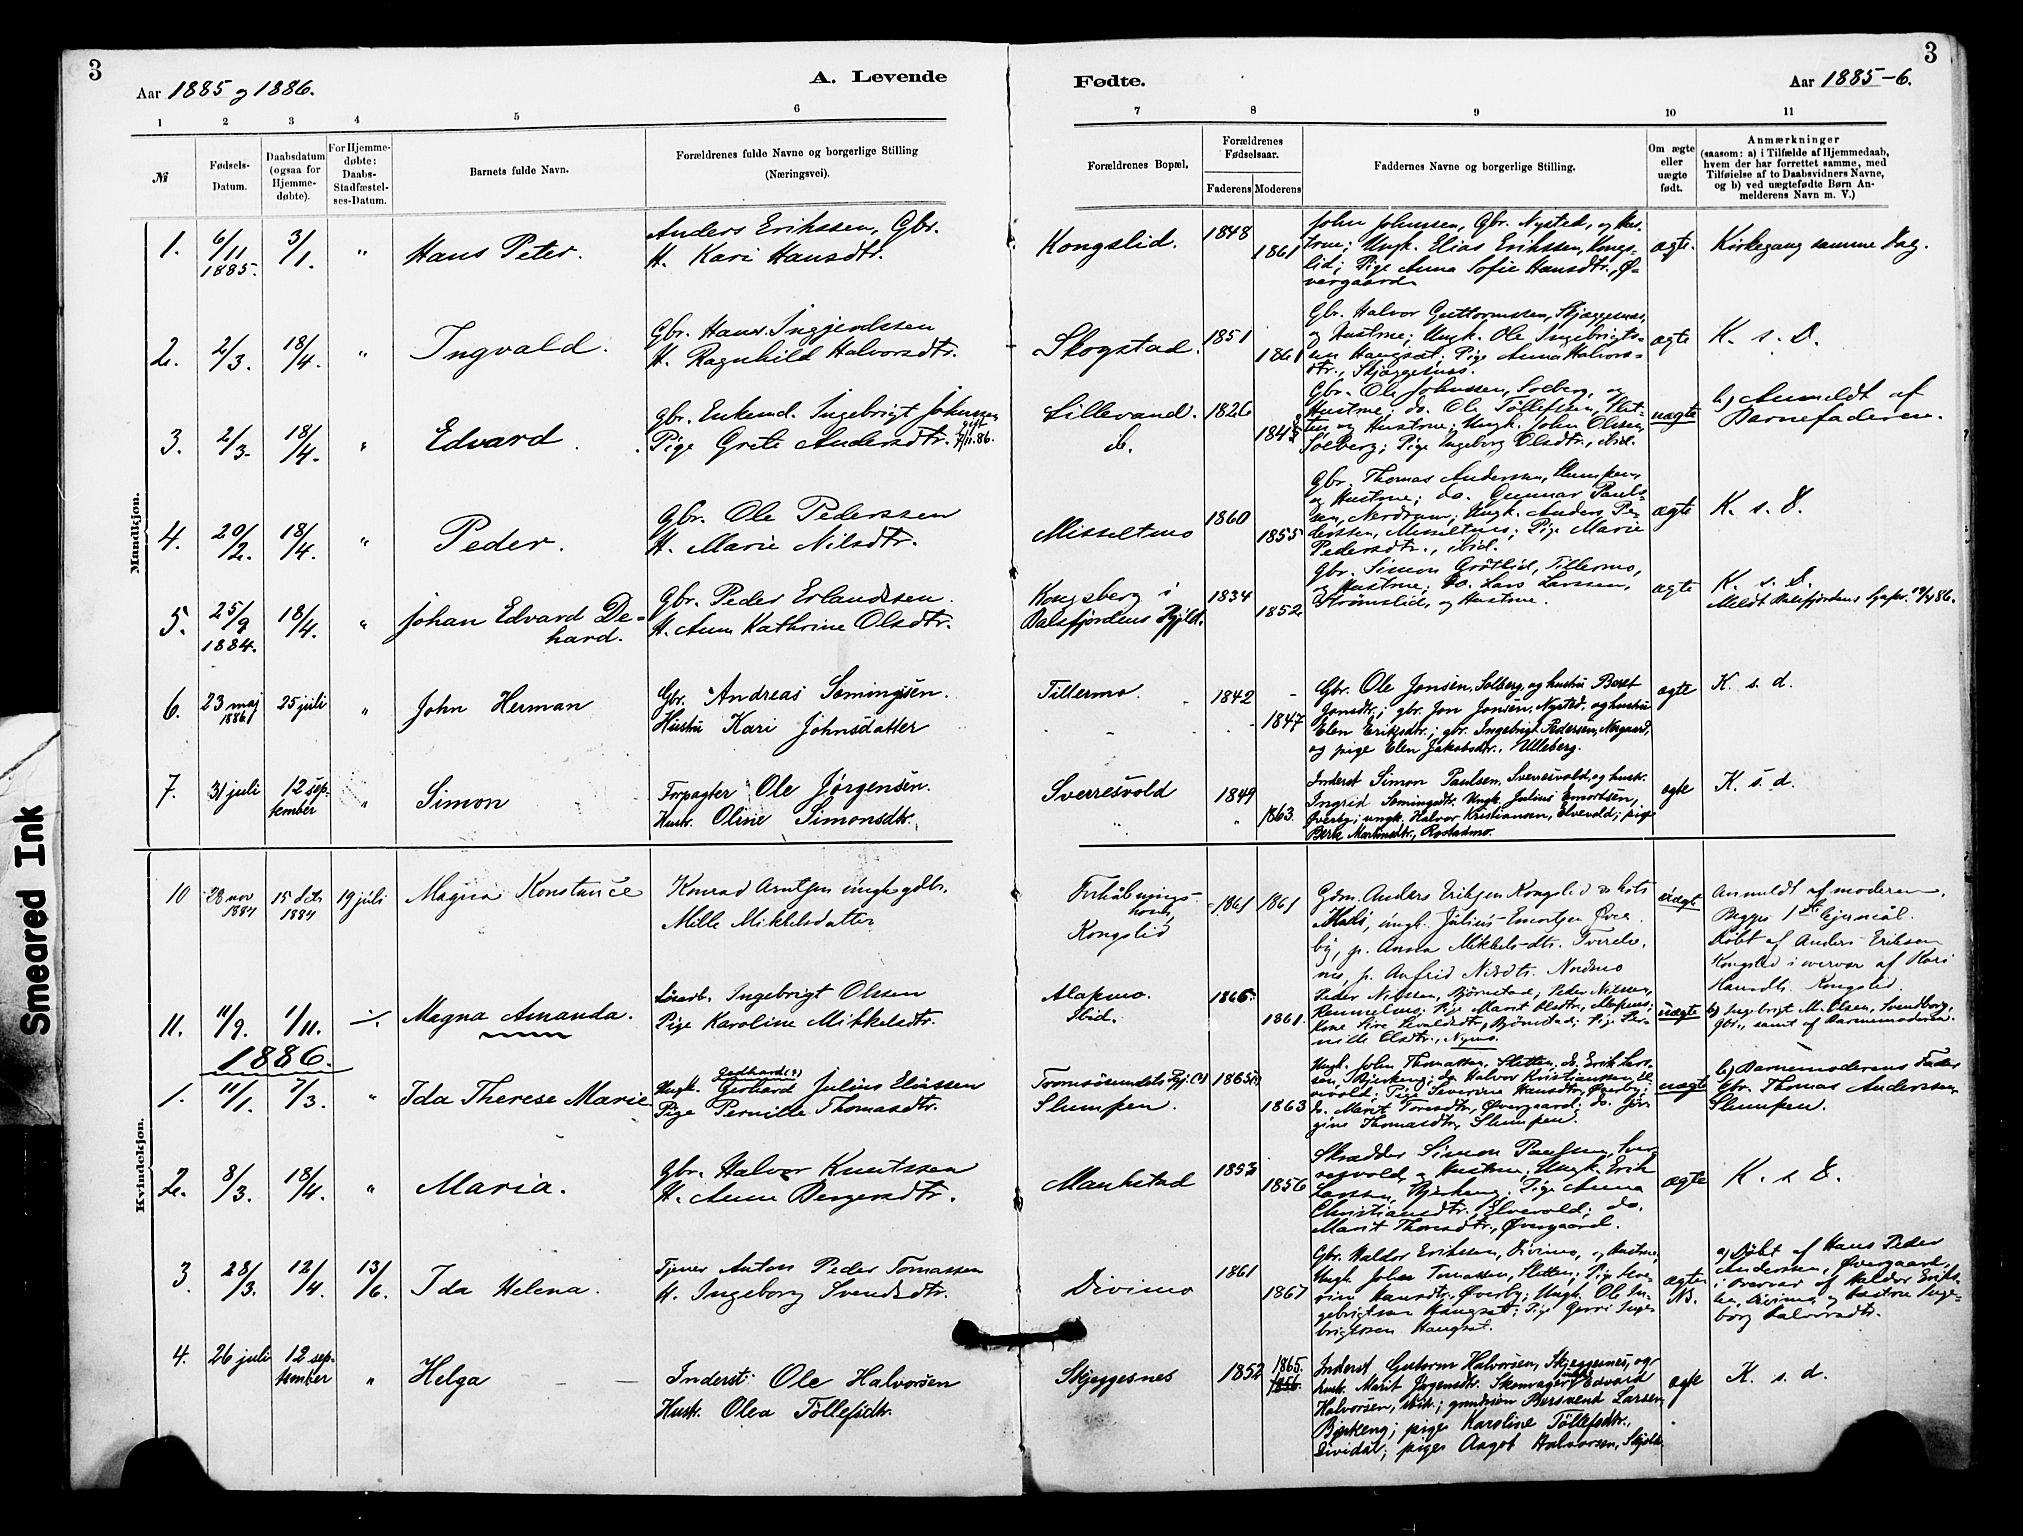 3
Aar 1885 og 1886.
A. Levende
Fødte.
Aar 1885-6.
3
1 2 3 4 5 6 7 8 9 10 11
№
Fødsels-
Datum.
Daabsdatum
(ogsaa for
Hjemme-
døbte).
For Hjemme-
døbte:
Daabs-
Stadfæstel-
ses-Datum.
Barnets fulde Navn.
Forældrenes fulde Navne og borgerlige Stilling
(Næringsvei).
Forældrenes Bopæl.
Forældrenes
Fødselsaar.
Faderens Moderens
Faddernes Navne og borgerlige Stilling.
Om ægte
eller
uægte
født.
Anmærkninger
(saasom: a) i Tilfælde af Hjemmedaab,
hvem der har forrettet samme, med
Tilføielse af to Daabsvidners Navne,
og b) ved uægtefødte Børn An-
melderens Navn m. V.)
Mandkjøn.
1. 6/11 1885. 3/1. " Hans Peter.
Anders Erikssen, Gbr.
H. Kari Hansdtr.
Kongslid. 1848 1861
John Johnsen, Gbr. Nysted, og Hus-
true; Ungk. Elias Erikssen, Kongs-
lid; Pige Anna Sofie Hansdtr., Ø-
vergaard.
ægte. Kirkegang samme Dag.
2. 2/3. 18/4. " Ingvald.
Gbr. Hans Ingjendssen
H. Ragnhild Halvorsdtr.
Skogstad. 1851 1861
Gbr. Halvor Guttormssen, Skjæggesnes,
og Hustrue; Ungk. Ole Ingebrigts-
sen Haugsæt; Pige Anna Halvors-
dtr., Skjæggesnes.
ægte K. s. D.
3. 2/3. 18/4. " Edvard.
Gbr. Enkemd. Ingebrigt Johnssen
Pige Grete Andersdtr. gift 7/11.86.
Lillevand. 1826 1845
Gbr. Ole Johnssen, Solberg, og
Hustrue; do. Ole Tollefsen, Slet-
ten og Hustrue; Ungk. John Olssen,
Solberg; Pige Ingeborg Olsdtr., ibid.
uægte b) Anmeldt af
Barnefaderen.
4. 20/2. 18/4. " Peder.
Gbr. Ole Pederssen
H. Marie Nilsdtr.
Misseltmo 1860 1855
Gbr. Thomas Anderssen, Slumpen,
og Hustrue; do. Gunnar Pauls-
sen, Nordrum; Ungk. Anders Pe-
derssen, Misseltmo; Pige Marie
Pedersdtr., ibid.
ægte K. s. D.
5. 25/9 1884. 18/4. " Johan Edvard De-
hard.
Gbr. Peder Erlandssen.
H. Anne Kathrine Olsdtr.
Kongsberg i
Balsfjordens Pgjld. 1834 1852
Gbr. Simon Grøtlid, Tillermo,
og Hustrue; do. Lars Larssen,
Strømslid, og Hustrue.
ægte K. s. D.
Meldt Balsfjordens Spr.
6. 23 maj 1886 25 juli " John Herman
Gbr. Andreas Somingsen.
Hustru Kari Johnsdatter
Tillermo. 1842 1847
Gbr. Ole Jonsen, Solberg, og hustru Beret
Jonsdtr.; gbr. Jon Jonsen, Nysted, og hustru
Elen Eriksdtr.; gbr. Ingebrigt Pedersen, Nergaard,
og pige Elen Jakobsdtr., Ulleberg.
ægte K. s. d.
7. 31 juli 12 sep-
tember " Simon
Forpagter Ole Jørgensen.
Hustr. Oline Simonsdtr.
Sverresvold 1849 1863.
Inderst Simon Paulsen, Sverresvold, og hustr.
Ingrid Somingsdtr. Ungk. Julius Emortsen,
Øverby; ungk. Halvor Kristiansen, Elvevold; pige
Berte Martinsdtr., Rostadmo.
ægte K. s. d.
Kvindekjøn.
10 28 nov 1884 15 dcts 1884 19 juli Magna Konstance
Konrad Arntsen ungk gdbr.
Mille Mikkelsdatter
Forhåbnings-
holt,
Kongslid 1861 1861
Gdm. Anders Eriksen Kongslid og kots
Kari, ungk. Julius Emortsen Øver-
by, p. Anna Mikkelsdtr. Tverelv-
nes, p. Anfrid Nilsdtr. Nordmo
uægte Anmeldt af moderen.
Begges 1ste lejermål.
Døbt af Anders Eriksen
Kongslid i overvær af Kari
Hansdtr. Kongslid.
11. 11/9. 1/11. Magna Amanda.
Løsarb. Ingebrigt Olssen
Pige Karoline Mikkelsdtr.
Alapmo.
Ibid. 1866. 1861.
Peder Nilssen, Bjørnstad; Peder Nilssen,
Rennelmo; Pige Marit Olsdtr., Alapmo;
Kone Sivaldsdtr., Bjørnstad; Pige Per-
nille Olsdtr., Nymo.
uægte b) Ingebrigt M. Olsen, Svendborg,
Gbr., samt af Barnemoderen.
1886.
1. 11/1. 7/3. " Ida Therese Marie
Ungk. Gerhard Gedhard(?) Julius Eliassen
Pige Pernille Thomasdtr.
Tromsøsundets Pgj.(?)
Slumpen. 1865(?) 1863
Ungk. John Thomassen, Sletten, do. Erik Lars-
sen, Bjerkeng; do. Halvor Kristianssen, El-
vevold; Pige Severine Hansdtr., Øverby;
do. Marit Toresdtr., Øvergaard; do. Jør-
gine Thomasdtr., Slumpen.
uægte b) Barnemoderens Fader
Gbr. Thomas Anderssen
Slumpen.
2. 8/3. 18/4. " Maria.
Gbr. Halvor Knutssen
H. Anne Bergersdtr.
Maukstad 1853 1856
Skrædder Simon Paulsen, Sver-
resvold, og Hustrue; Ungk. Erik
Larssen, Bjerkeng; Pige Anna
Christiansdtr., Elvevold; do.
Marit Thoresdtr., Øvergaard.
ægte K. s. D.
3. 28/3. 12/4. 13/6. Ida Helena.
Tjener Anton Peder Tomassen
H. Ingeborg Svendsdtr.
Divimo 1861 1867
Gbr. Haldor Erikssen, Divimo, og Hustrue;
Ungk. John Tomassen, Sletten; Pige Seve-
rine Hansdtr., Øverby; Ungk. Ole In-
gebrigtsen Haugsæt; Pige Gurri Inge-
brigtssen Haugsæt.
ægte NB.
a) Døbt af Hans Peder
Anderssen, Øvergaard,
i Overvær af Haldor Eriks-
sen, Divimo, og Hustrue Inge-
borg Halvorsdtr.
4. 26 juli 12 sep-
tember " Helga
Inderst Ole Halvorsen
Hustr. Olea Tollefsdtr.
Skjeggesnes 1852 1865. 1856.
Inderst Guttorm Halvorsen, Skjeggesnes, og
hustr. Marit Jørgensdtr. Skomager Edvard
Halvorsen, ibid.; gaardmøn Bersvend Larsen,
Bjerkeng; pige Karoline Tollefsdtr.,
Dividal; pige Aagot Halvorsen, Skjold.
ægte K. s. d.
Smeared Ink